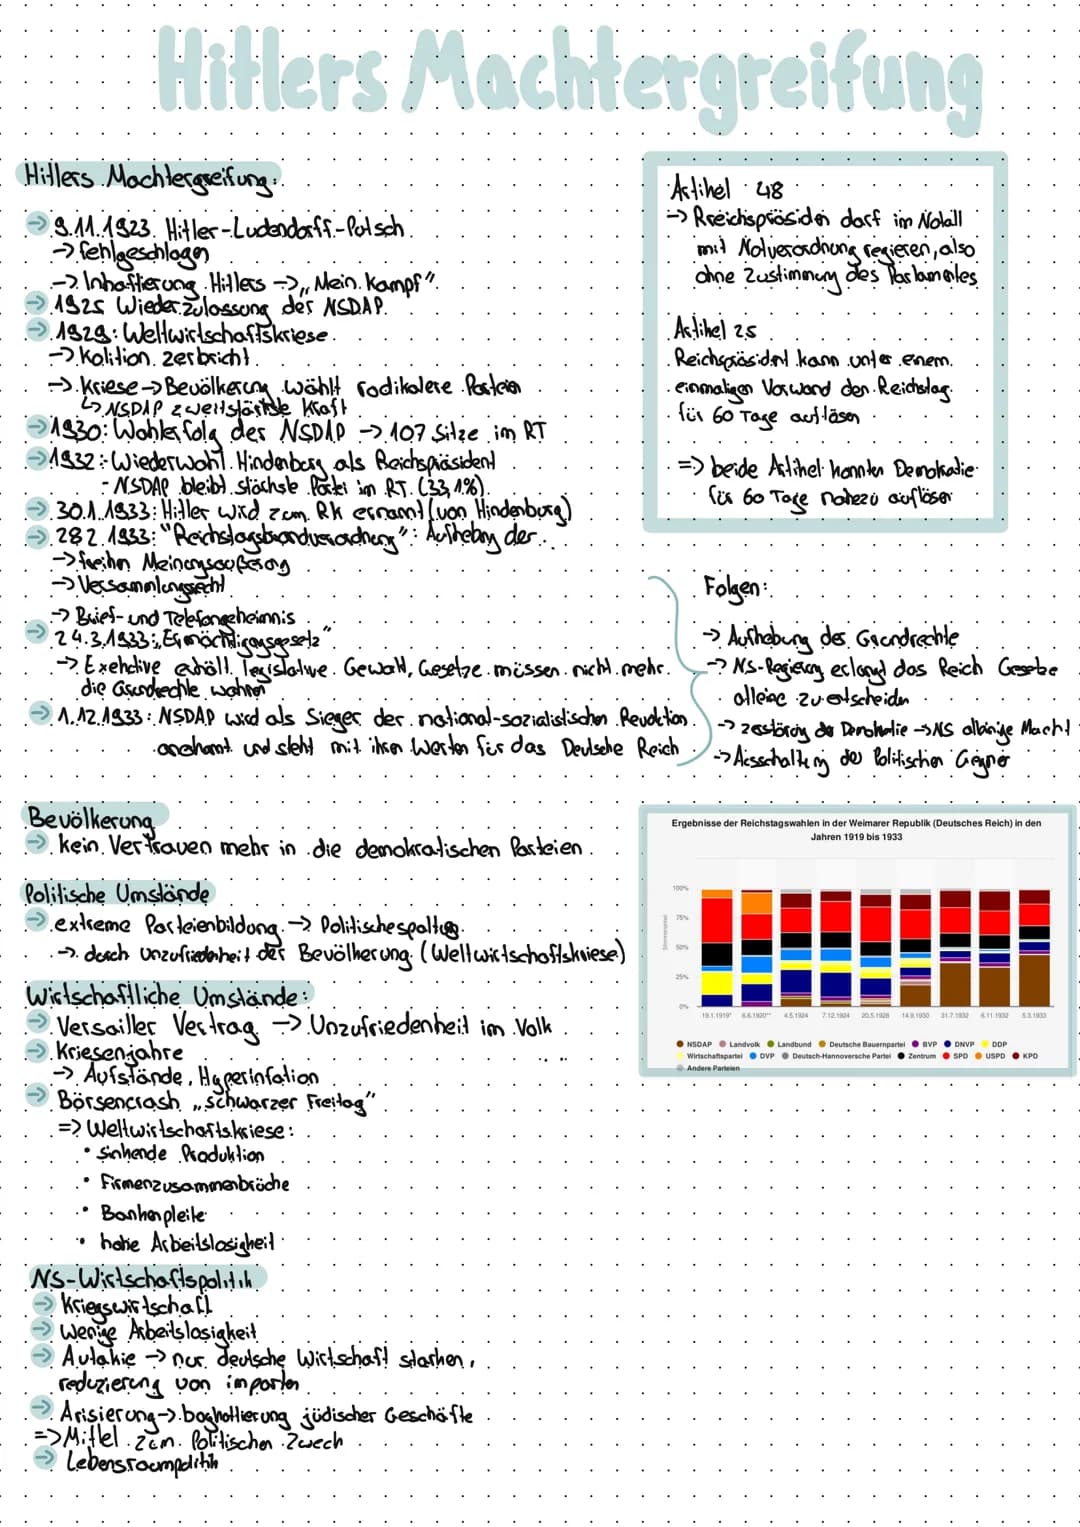 Hitlers Machtergreifung
Hitlers Machtergreifung:
→ 9.11.1923 Hitler-Ludendorff-Putsch
→ fehlgeschlagen
→ Inhaftierung Hitlers → „Mein Kampf"
→ 1925 Wiederzulassung der NSDAP
→ 1929: Weltwirtschaftskriese
→ Kolition zerbricht
→ Kriese → Bevölkerung wählt radikalere Parteien
↳ NSDAP zweitstärkste Kraft
→ 1930: Wahlerfolg der NSDAP → 107 Sitze im RT
→ 1932: Wiederwahl Hindenburg als Reichspräsident
- NSDAP bleibt stärkste Partei im RT (33,1%)
→ 30.1.1933: Hitler wird zum RK ernannt (von Hindenburg)
→ 28.2.1933: "Reichstagsbrandverordnung": Aufhebung der...
→ freihn Meinungsäußerung
→ Versammlungsrecht
→ Brief- und Telefongeheimnis
→ 24.3.1933: „Ermächtigungsgesetz"
→ Exekutive erhält legislative Gewalt, Gesetze müssen nicht mehr
die Grundrechte wahren
→ 1.12.1933: NSDAP wird als Sieger der national-sozialistischen Revolution
anerkannt und steht mit ihren Werten für das Deutsche Reich
Artikel 48
→ Reichspräsident darf im Notall
mit Notverordnung regieren, also
ohne Zustimmung des Parlamentes
Artikel 25
Reichspräsident kann unter enem
einmaligen Vorwand den Reichstag
für 60 Tage auflösen
=> beide Artikel konnten Demokratie
für 60 Tage nahezu auflösen
Folgen:
→ Aufhebung der Grundrechte
→ NS-Regierung erlangt das Reich Gesetze
alleine zu entscheiden
→ zerstörung der Demokratie → NS alleinige Macht
→ Ausschaltung der Politischen Gegner
Bevölkerung
→ kein Vertrauen mehr in die demokratischen Parteien
Politische Umstände
→ extreme Parteienbildung → Politische spaltung
→ durch Unzufriedenheit der Bevölkerung (Weltwirtschaftskriese)
Wirtschaftliche Umstände:
→ Versailler Vertrag → Unzufriedenheit im Volk
→ Kriesenjahre
→ Aufstände, Hyperinfation
→ Börsencrash „schwarzer Freitag"
=> Weltwirtschaftskriese:
• sinkende Produktion
• Firmenzusammenbrüche
• Bankenpleite
• hohe Arbeitslosigkeit
NS-Wirtschaftspolitik
→ Kriegswirtschaft
→ Wenige Arbeitslosigkeit
→ Autakie → nur deutsche Wirtschaft starken,
reduzierung von importen
→ Arisierung → boykottierung jüdischer Geschäfte
=> Mittel zum Politischen Zweck
→ Lebensraumpolitik
Ergebnisse der Reichstagswahlen in der Weimarer Republik (Deutsches Reich) in den
Jahren 1919 bis 1933
100%
75%
50%
25%
0%
19.1.1919* 6.6.1920** 4.5.1924 7.12.1924 20.5.1928 14.9.1930 31.7.1932 6.11.1932 5.3.1933
NSDAP Landvolk Landbund Deutsche Bauernpartei BVP DNVP DDP
Wirtschaftspartei DVP Deutsch-Hannoversche Partei Zentrum SPD USPD KPD
Andere Parteien